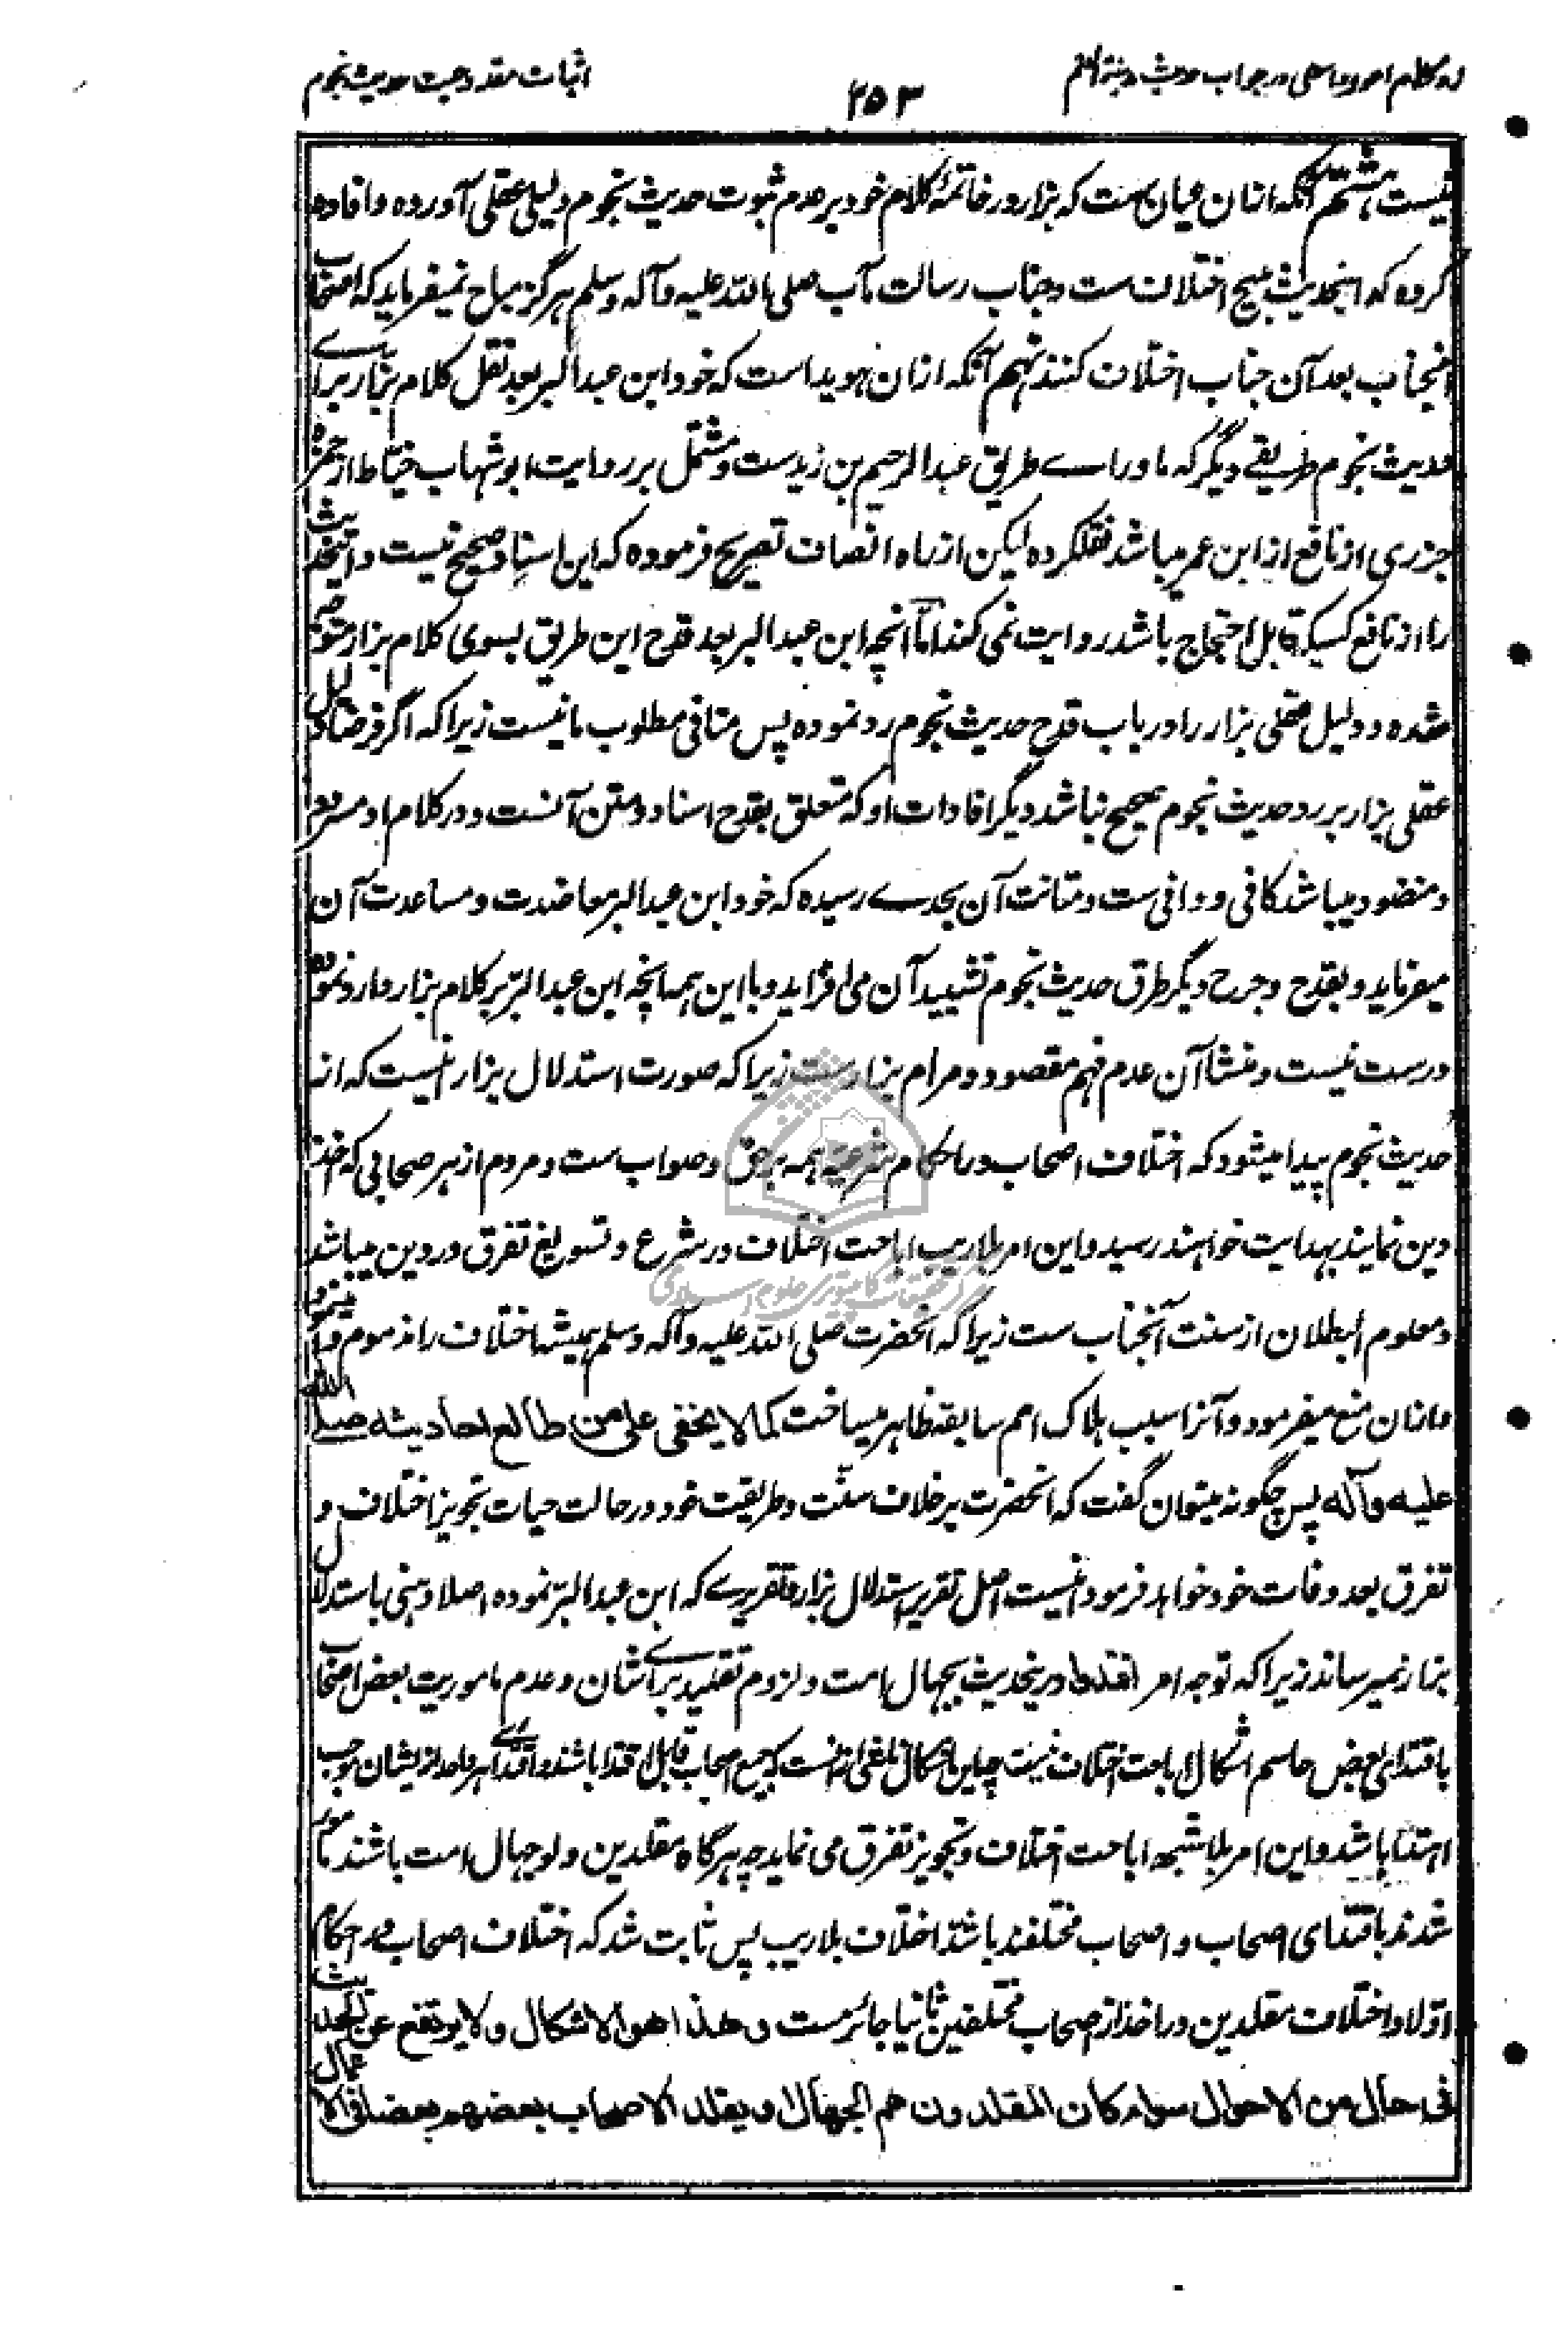 رد کلام در جواب حدیث مدینة العلم
۲۵۳
اثبات مقدوحیت حدیث نجوم
نیست هشتم آنکه ازان عیان ست که بزار در خاتمهٔ کلام خود بر عدم ثبوت حدیث نجوم دلیل عقلی آورده و افاده
کرده که اینحدیث مبیح اختلاف ست و جناب رسالت مآب صلی الله علیه و آله وسلم هرگز مباح نمیفرماید که اصحاب
آنجناب بعد آن جناب اختلاف کنند نهم آنکه ازان هویداست که خود ابن عبدالبر بعد نقل کلام بزار برای
حدیث نجوم طریقے دیگر که ماورای طریق عبدالرحیم بن زیدست و مشتمل بر روایت ابو شهاب حناط از حمزه
جزری از نافع از ابن عمر میباشد نقلکرده لیکن از راه انصاف تصریح فرموده که این اسناد صحیح نیست و اینحدیث
را از نافع کسیکه قابل احتجاج باشد روایت نمی کند اما آنچه ابن عبدالبر بعد قدح این طریق بسوی کلام بزار متوجه
شده و دلیل عقلی بزار را در باب قدح حدیث نجوم رد نموده پس منافی مطلوب ما نیست زیرا که اگر فرضا دلیل
عقلی بزار بر رد حدیث نجوم صحیح نباشد دیگر افادات او که متعلق بقدح اسناد و متن آنست و در کلام او مسرود
و منضود میباشد کافی و وافی ست و متانت آن بحدے رسیده که خود ابن عبدالبر معاضدت و مساعدت آن
میفرماید و بقدح و جرح دیگر طرق حدیث نجوم تشیید آن می افزاید و با این همه آنچه ابن عبدالبر بر کلام بزار وارد نموده
درست نیست و منشأ آن عدم فهم مقصود و مرام بزارست زیرا که صورت استدلال بزار اینست که از
حدیث نجوم پیدا میشود که اختلاف اصحاب در احکام شرعیه همه بر حق و صواب ست و مردم از هر صحابی که اخذ
دین نمایند بهدایت خواهند رسید و این امر بلا ریب اباحت اختلاف در شرع و تسویغ تفرق در دین میباشد
و معلوم البطلان از سنت آنجناب ست زیرا که آنحضرت صلی الله علیه و آله وسلم همیشه اختلاف را مذموم وا مینمود
و ازان منع میفرمود و آنرا سبب هلاک امم سابقه ظاهر میساخت کما لا یخفی علی من طالع احادیثه صلی الله
علیه و آله پس چگونه میتوان گفت که آنحضرت بر خلاف سنت و طریقت خود در حالت حیات تجویز اختلاف و
تفرق بعد وفات خود خواهد فرمود اینست اصل تقریر استدلال بزار و تقریرے که ابن عبدالبر نموده اصلا وهنی باستدلال
بزار نمیرساند زیرا که توجه امر اقتدا درینحدیث بجهال امت و لزوم تقلید برای شان و عدم ماموریت بعض اصحاب
باقتدای بعض حاسم اشکال اباحت اختلاف نیست چه این اشکال ناشی ازانست که جمیع اصحاب قابل اقتدا باشند و اقتدای هر واحد ازیشان موجب
اهتدا باشد و این امر بلا شبهه اباحت اختلاف و تجویز تفرق می نماید چه هرگاه مقلدین ولو جهال امت باشند مامور
شدند باقتدای اصحاب و اصحاب مختلف باشند اختلاف بلا ریب پس ثابت شد که اختلاف اصحاب در احکام
اولا و اختلاف مقلدین در اخذ از صحاب مختلفین ثانیا جائزست و هذا هو الاشکال و لا یرتفع عن الحدیث
فی حال من الاحوال سواء کان المقلدون هم الجهال او یقلد الاصحاب بعضهم بعضا فی الاعمال
مرکز تحقیقات کامپیوتری علوم اسلامی